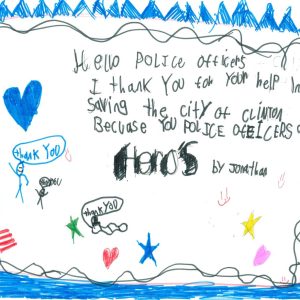 Hello Police officers
I thank You for Your help In
Saving the city of CLINTON
Becuase YOU POLICE OFFICERS
Hero's
by Jonathan
thank YOU
thank YOU